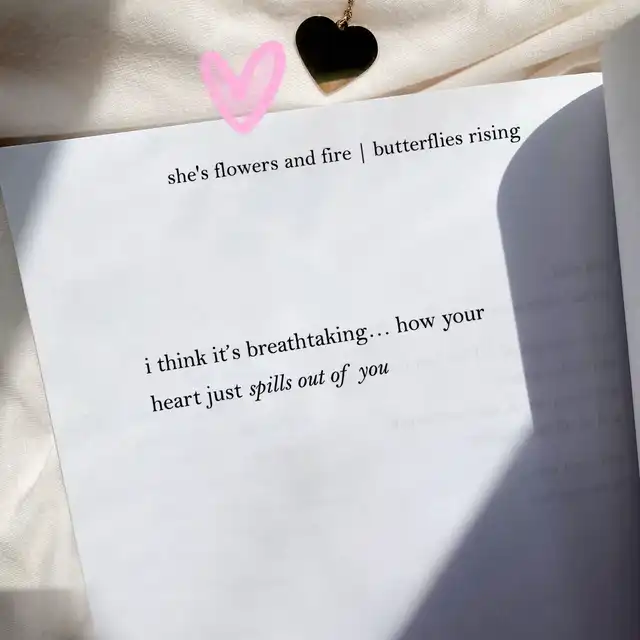 she's flowers and fire | butterflies rising
i think it's breathtaking... how your
heart just spills out of you